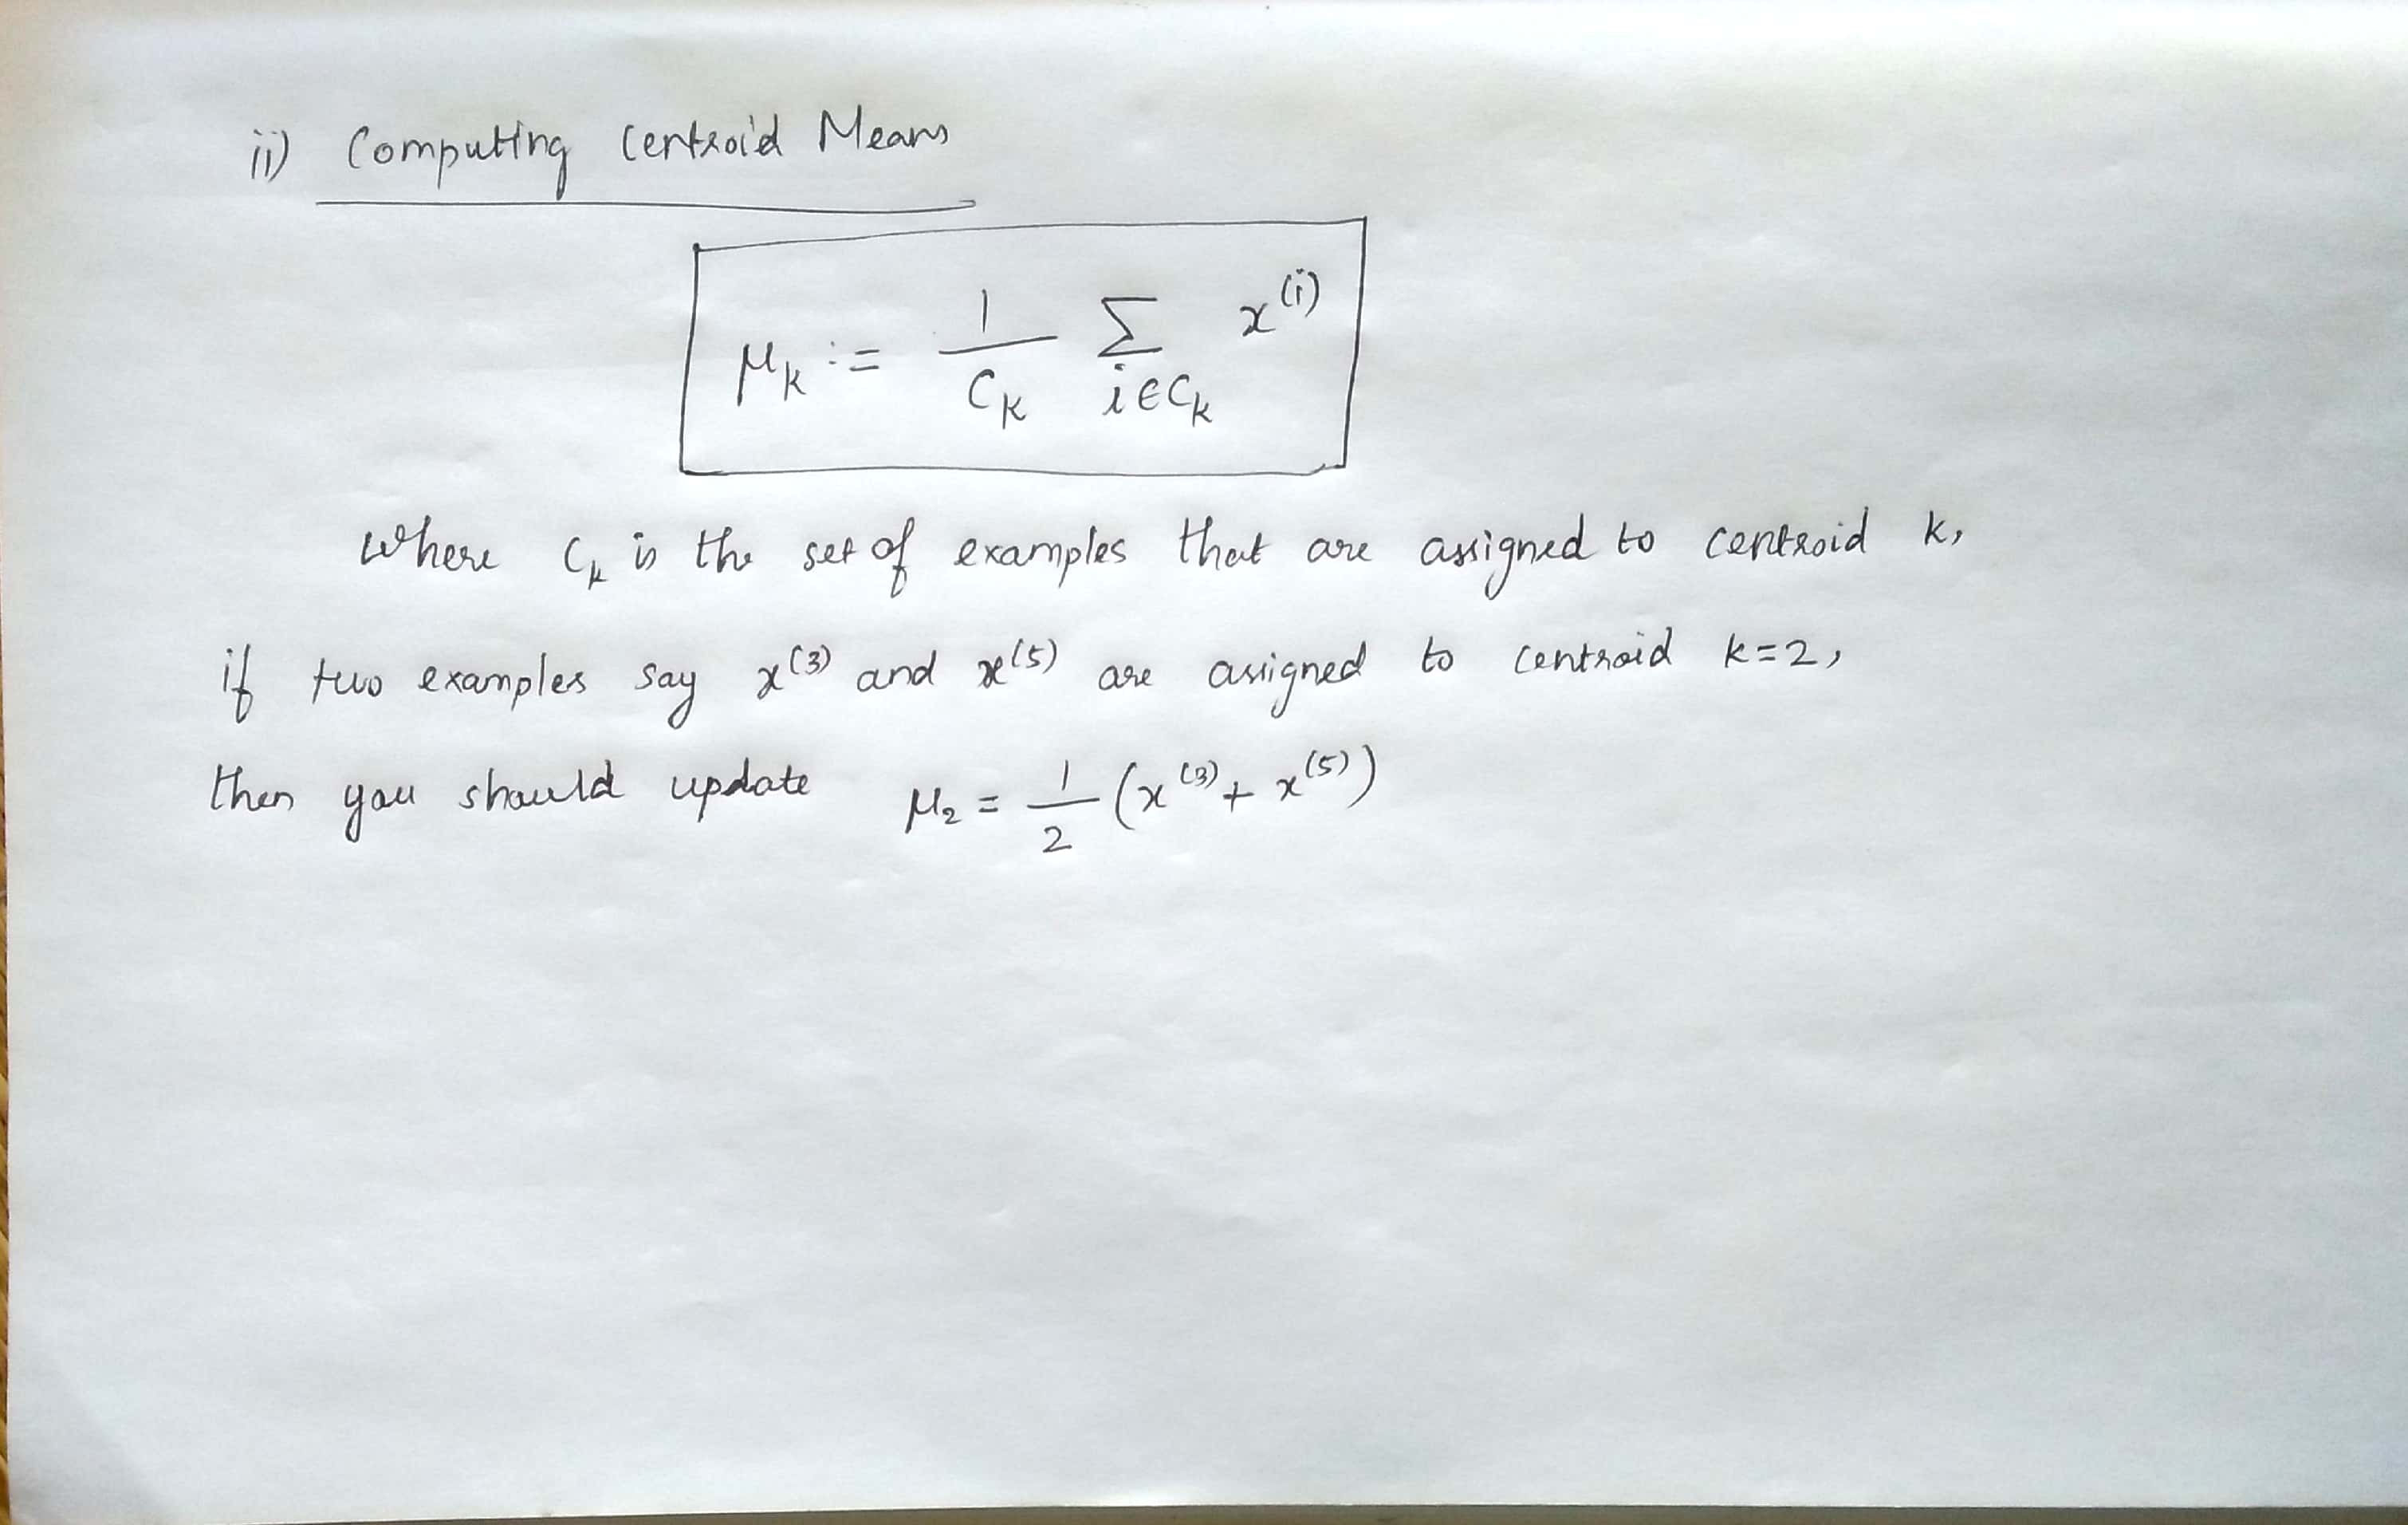 ii) Computing Centroid Means
μₖ := 1/Cₖ Σ_{i∈Cₖ} x⁽ⁱ⁾
Where Cₖ is the set of examples that are assigned to centroid k,
if two examples say x⁽³⁾ and x⁽⁵⁾ are assigned to centroid k=2,
then you should update μ₂ = 1/2 (x⁽³⁾ + x⁽⁵⁾)